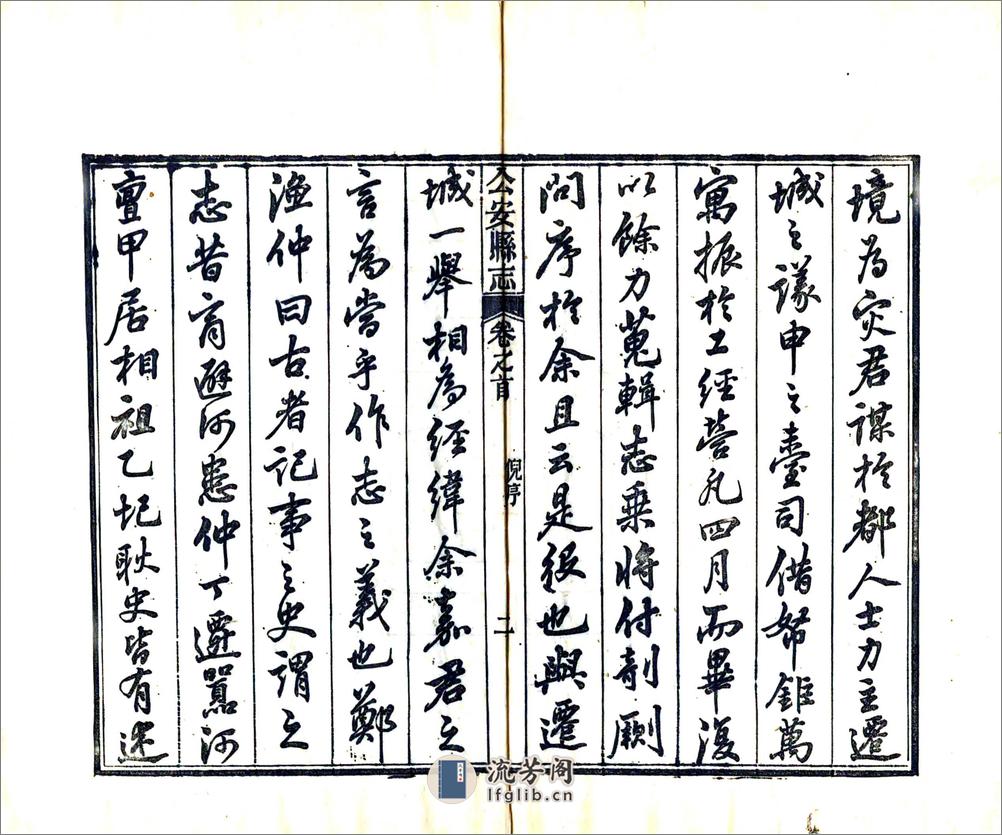 境為灾君謀於都人士力主遷
城之議申之臺司借帑鉅萬
寓振於工經營凡四月而畢復
以餘力蒐輯志乗将付剞劂
問序於余且云是役也與遷
公安縣志 卷之首 倪序 二
城一舉相為經緯余嘉君之
言為當乎作志之義也鄭
漁仲曰古者記事之史謂之
志昔商避河患仲丁遷嚻河
亶甲居相祖乙圮耿史皆有述
流芳阁
lfglib.cn